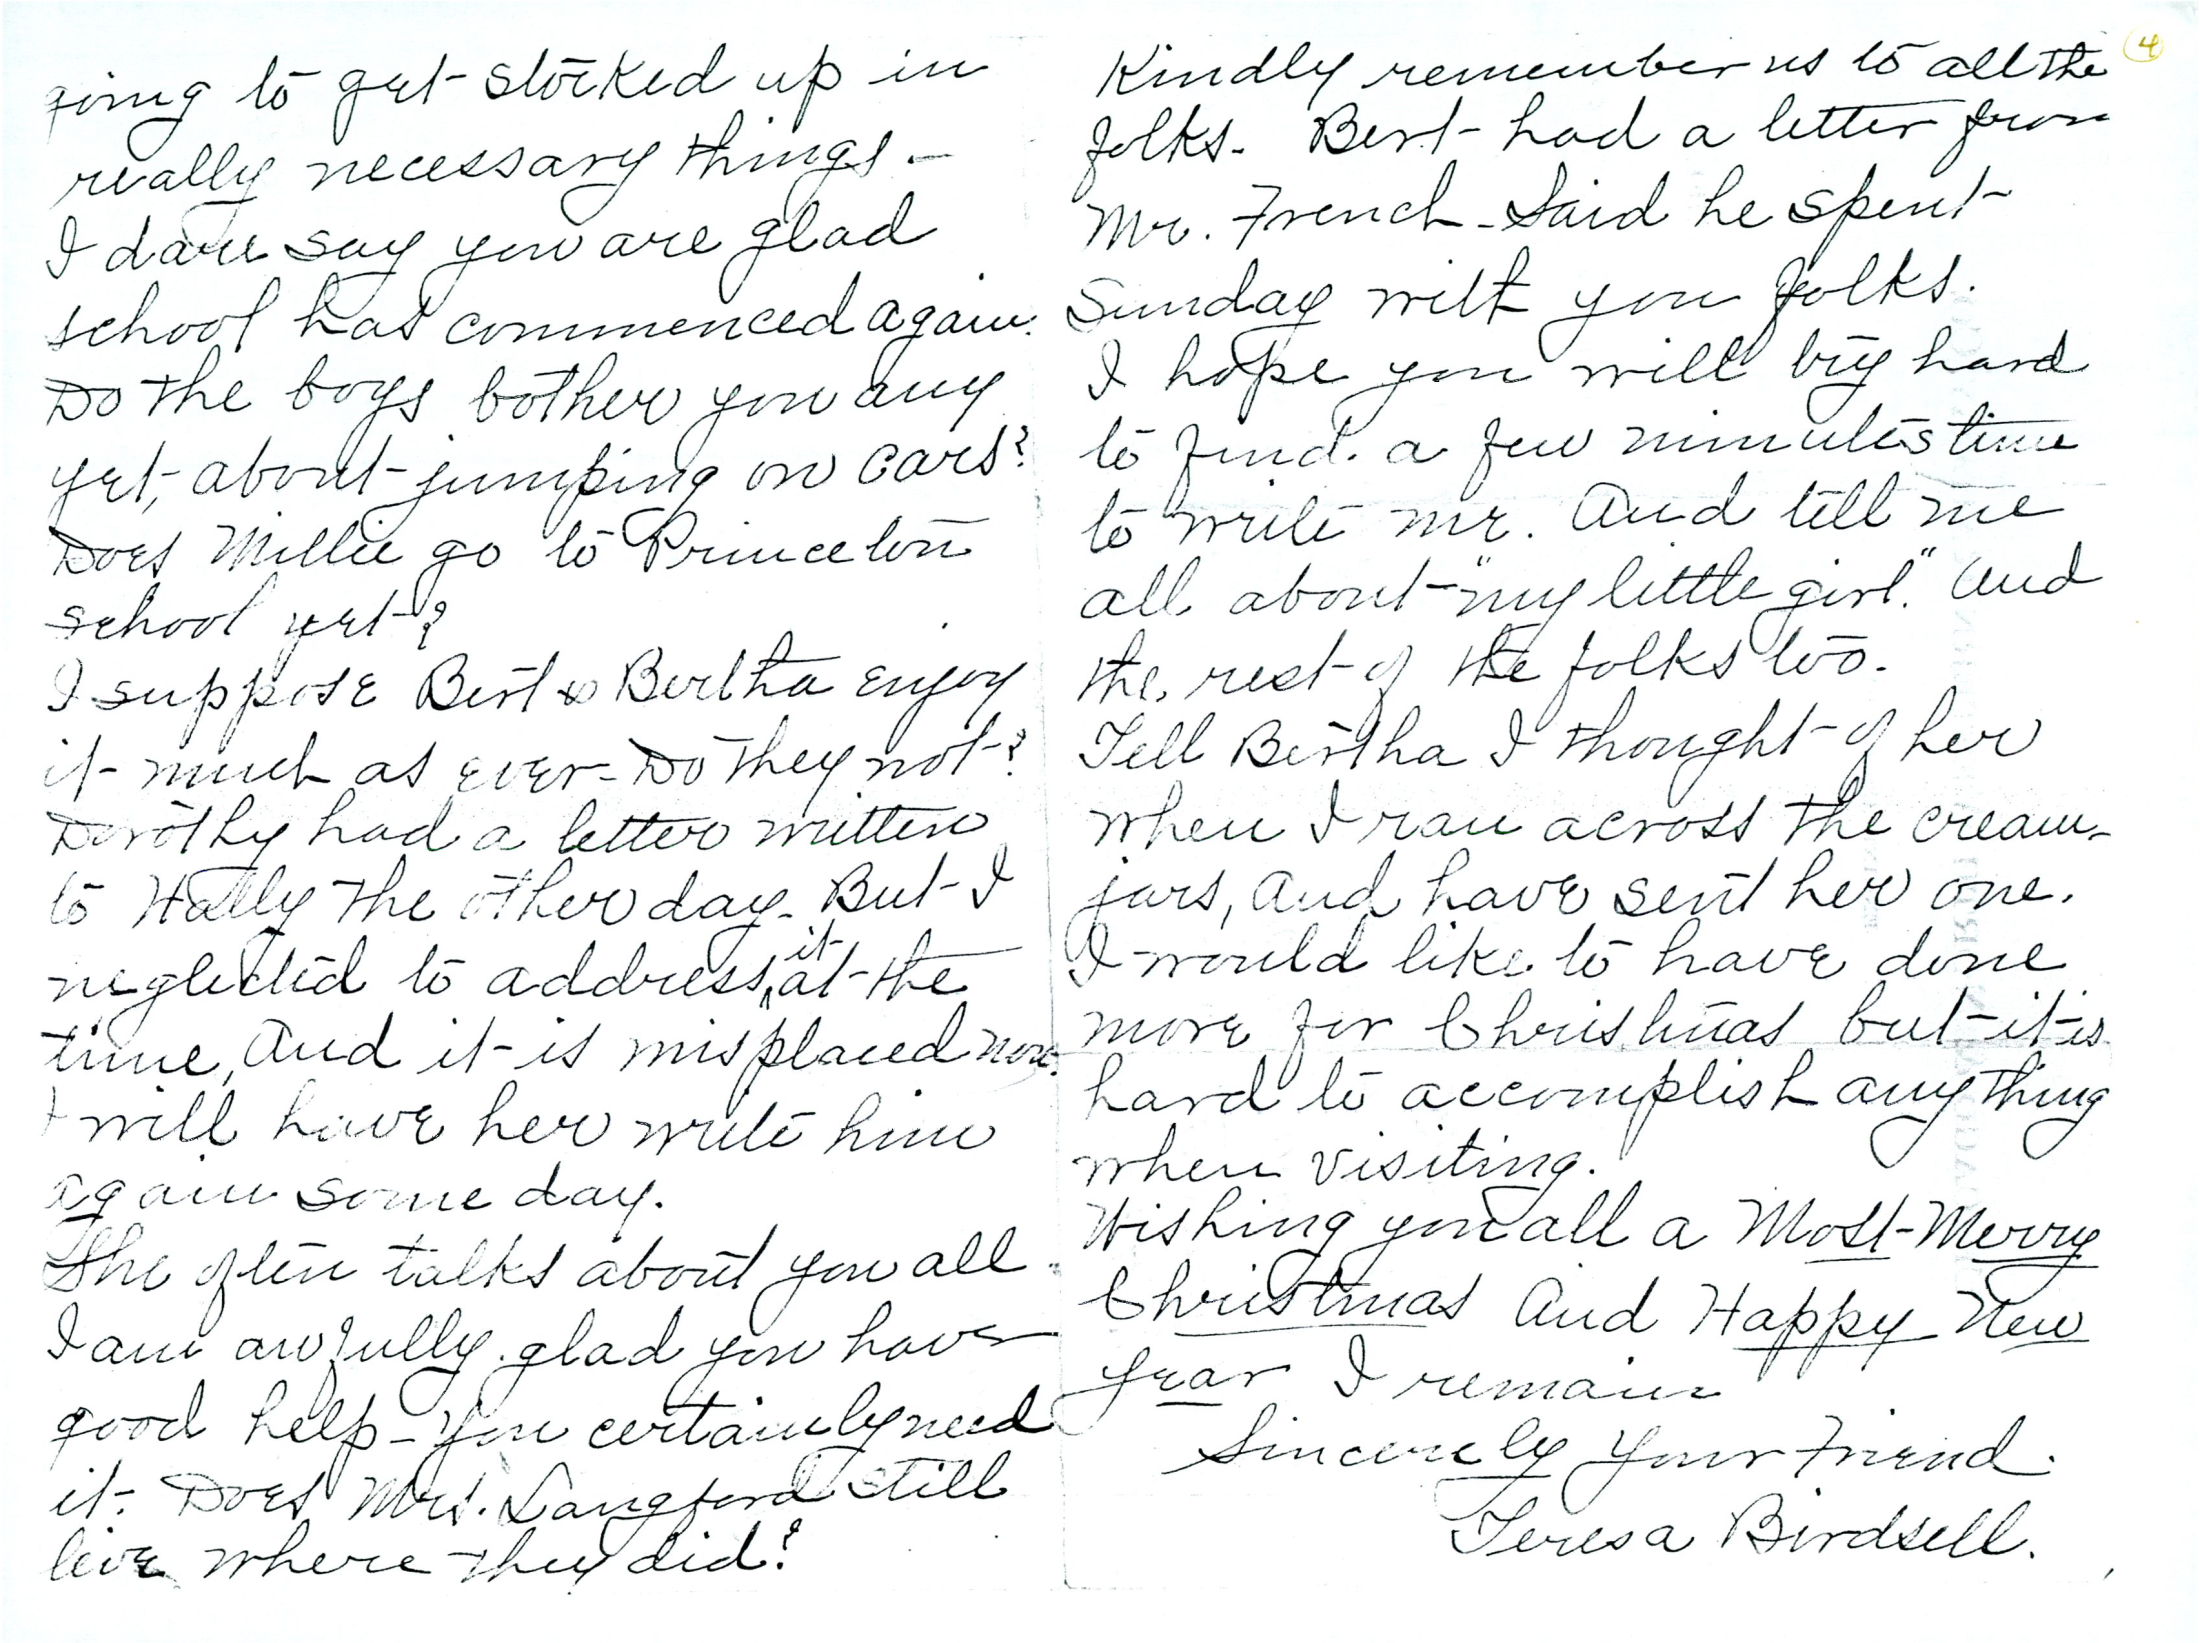 going to get stocked up in
really necessary things -
I dare say you are glad
school has commenced again.
Do the boys bother you any
yet, about jumping on cars?
Does Millie go to Princeton
school yet?
I suppose Bert & Bertha enjoy
it much as ever - Do they not?
Dorothy had a letter written
to Wally the other day. But I
neglected to address it at the
time, And it is misplaced now.
I will have her write him
again some day.
She often talks about you all.
I am awfully glad you have
good help - you certainly need
it. Does Mrs. Langford still
live where they did?
4
Kindly remember us to all the
folks. Bert had a letter from
Mr. French - Said he spent
Sunday with you folks.
I hope you will try hard
to find a few minutes time
to write me. And tell me
all about "my little girl." And
the rest of the folks too.
Tell Bertha I thought of her
when I ran across the cream
jars, And have sent her one.
I would like to have done
more for Christmas but it is
hard to accomplish any thing
when visiting.
Wishing you all a Most Merry
Christmas And Happy New
year I remain
Sincerely Your Friend.
Teresa Birdsell.